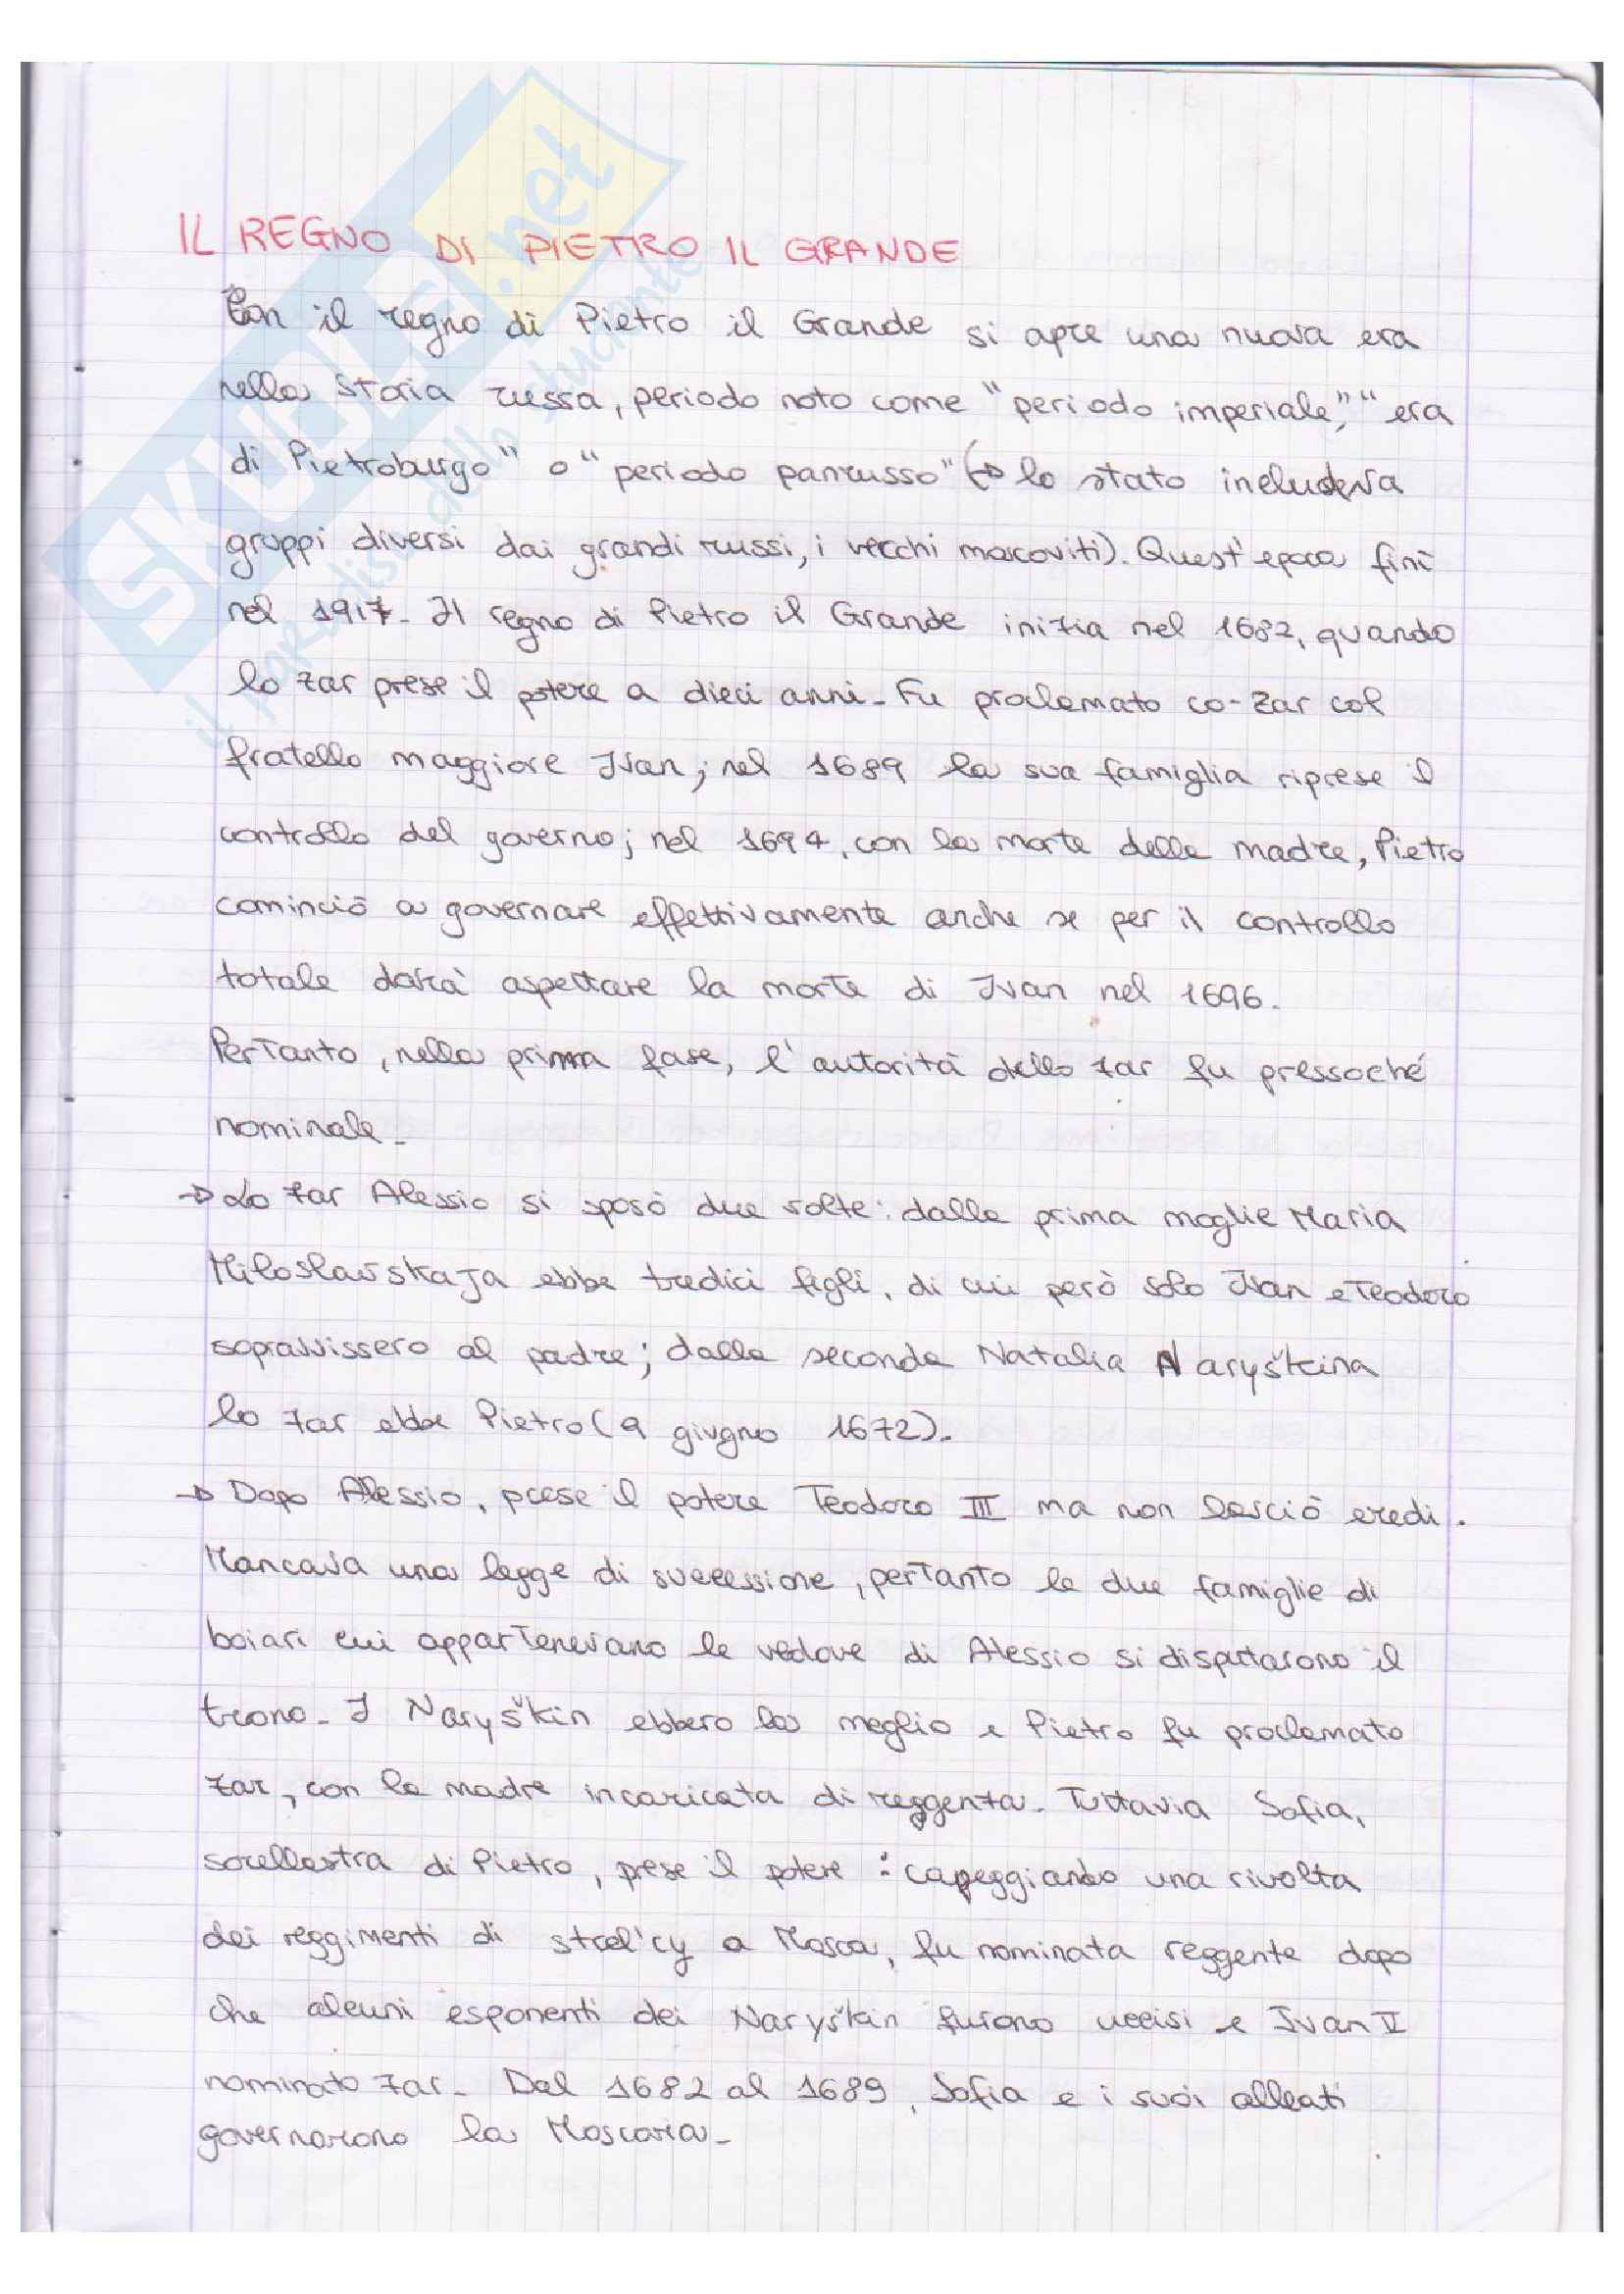 IL REGNO DI PIETRO IL GRANDE
Con il regno di Pietro il Grande si apre una nuova era
nella storia russa, periodo noto come "periodo imperiale", "era
di Pietroburgo" o "periodo panrusso" (→ lo stato includeva
gruppi diversi dai grandi russi, i vecchi moscoviti). Quest'epoca finì
nel 1917. Il regno di Pietro il Grande inizia nel 1682, quando
lo zar prese il potere a dieci anni. Fu proclamato co-zar col
fratello maggiore Ivan; nel 1689 la sua famiglia riprese il
controllo del governo; nel 1694, con la morte della madre, Pietro
cominciò a governare effettivamente anche se per il controllo
totale dovrà aspettare la morte di Ivan nel 1696.
Pertanto, nella prima fase, l'autorità dello zar fu pressoché
nominale.
→ Lo zar Alessio si sposò due volte: dalla prima moglie Maria
Miloslavskaja ebbe tredici figli, di cui però solo Ivan e Teodoro
sopravvissero al padre; dalla seconda Natalia Naryškina
lo zar ebbe Pietro (9 giugno 1672).
→ Dopo Alessio, prese il potere Teodoro III ma non lasciò eredi.
Mancava una legge di successione, pertanto le due famiglie di
boiari cui appartenevano le vedove di Alessio si disputarono il
trono. I Naryškin ebbero la meglio e Pietro fu proclamato
zar, con la madre incaricata di reggenza. Tuttavia Sofia,
sorellastra di Pietro, prese il potere: capeggiando una rivolta
dei reggimenti di strel'cy a Mosca, fu nominata reggente dopo
che alcuni esponenti dei Naryškin furono uccisi e Ivan V
nominato zar. Dal 1682 al 1689, Sofia e i suoi alleati
governarono la Moscovia.
SKUOLA.net
il paradiso dello studente